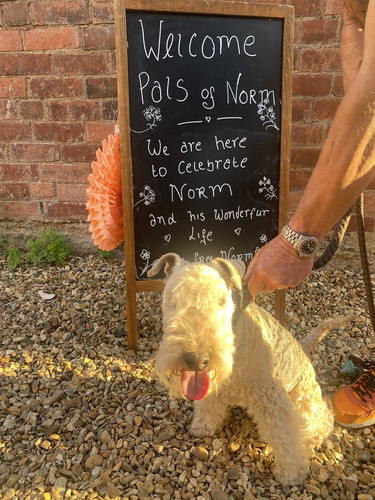 Welcome
Pals of Norm
We are here
to celebrate
Norm
and his Wonderful
Life
free Norm